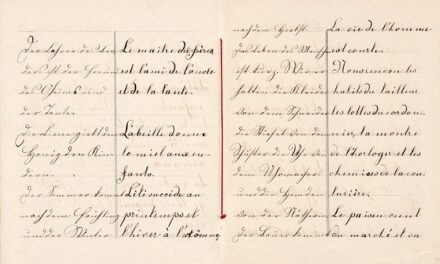 Der Lehrer des Le maître des frères
ist der Freund est l'ami de l'oncle
des Oheims und et de la tante.
der Tante.
Die Biene gibt den L'abeille donne
Honig den Kin le miel aux en-
dern. fants.
Der Sommer kommt L'été succède au
nach dem Frühling printemps et
und der Winter l'hiver à l'automne
nach dem Herbst. La vie de l'homme
Das Leben des Menschen est courte.
ist kurz. Wir Nous recevons les
halten die Kleider habits du tailleur
von dem Schneider les bottes du cordon-
die Stiefel von dem nier, la montre
Schuster die Uhr von de l'horloger et les
dem Uhrmacher chemises de la cou-
und die Hemden turière.
von der Nätherin. Le paysan vient
Der Bauer kommt du marché et va